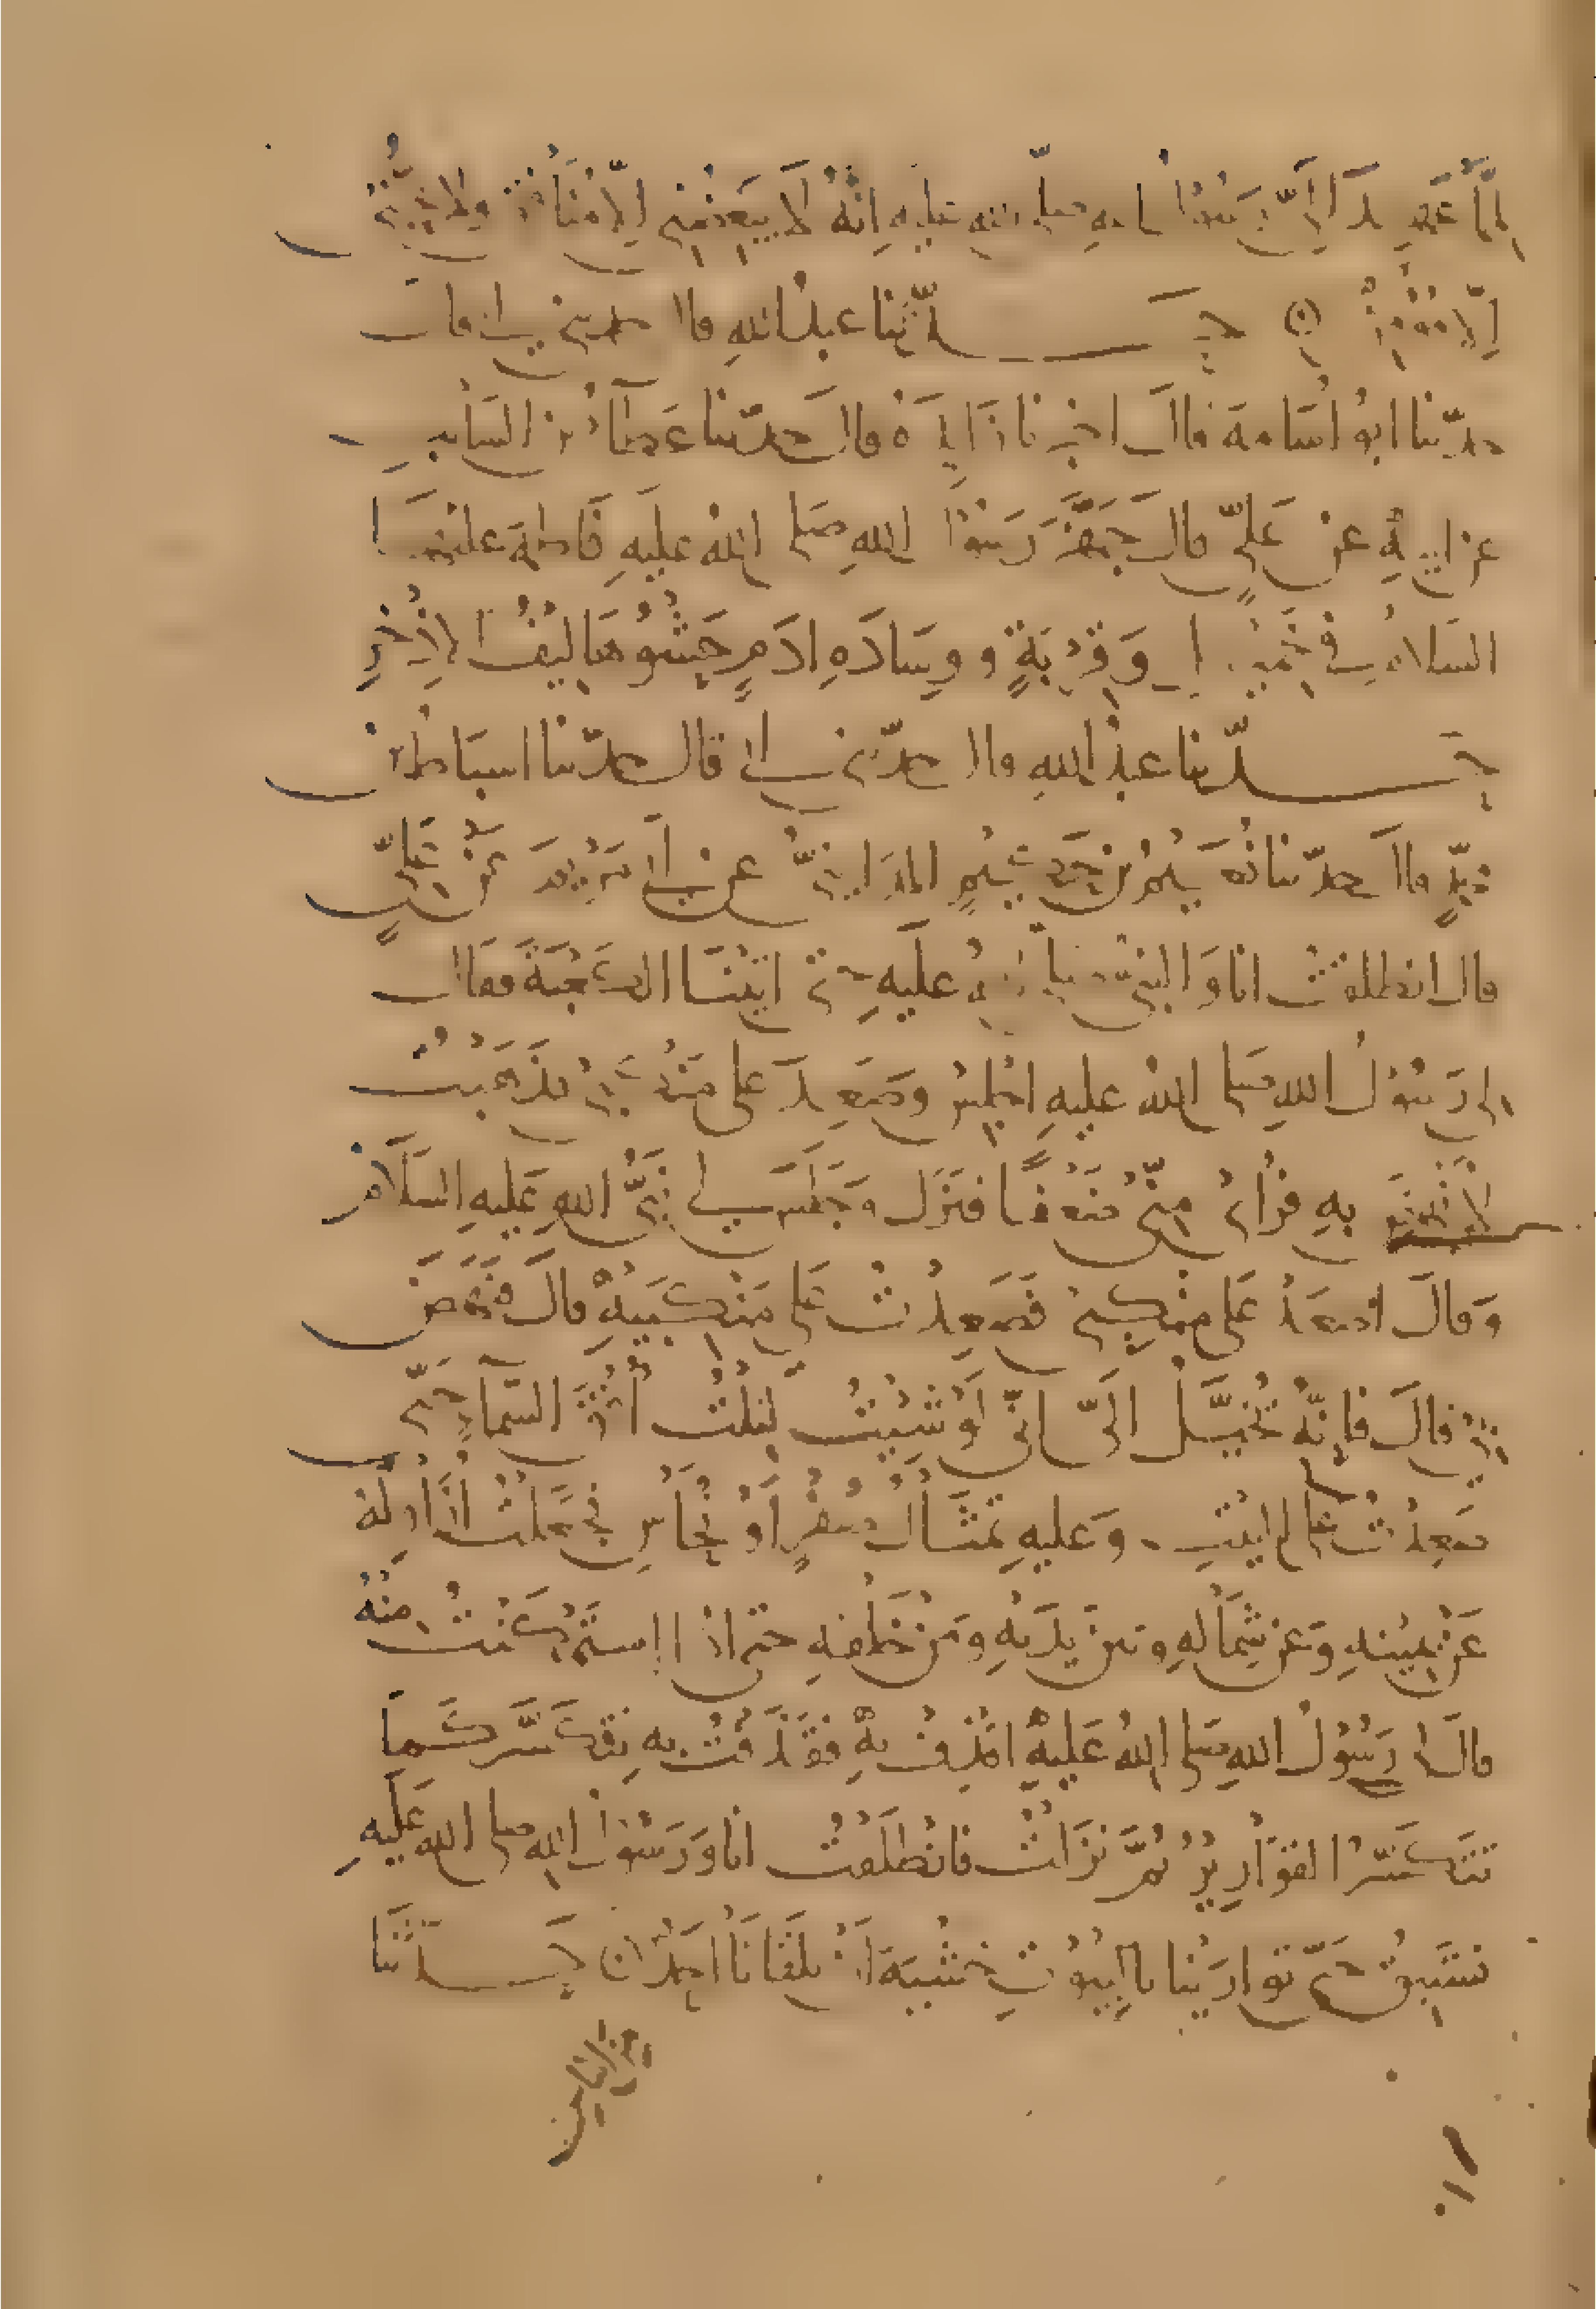 لمما عهد الى رسول الله صلى الله عليه انه لا يبغضني الا منافق ولا يحبني
الا مؤمن حدثنا عبد الله قال حدثني ابي قال
حدثنا ابو اسامة قال اخبرنا زايدة قال حدثنا عطاء بن السايب
عن ابيه عن علي قال جهز رسول الله صلى الله عليه فاطمة عليهما
السلام في خميل وقربة ووسادة ادم حشوها ليف الاذخر
حدثنا عبد الله قال حدثني ابي قال حدثنا اسباط بن
محمد قال حدثنا نعيم بن حكيم المدايني عن ابي مريم عن علي
قال انطلقت انا والنبي صلى الله عليه حتى اتينا الكعبة فقال
لي رسول الله صلى الله عليه اجلس وصعد على منكبي فذهبت
لانهض به فراى مني ضعفا فنزل وجلس لي نبي الله عليه السلام
وقال اصعد على منكبي فصعدت على منكبيه قال فنهض
بي قال فانه تخيل الي اني لو شيت لنلت افق السماء حتى
صعدت على البيت وعليه تمثال صفر او نحاس فجعلت ازاوله
عن يمينه وعن شماله وبين يديه ومن خلفه حتى اذا استمكنت منه
قال لي رسول الله صلى الله عليه اقذف به فقذفت به فتكسر كما
تتكسر القوارير ثم نزلت فانطلقت انا ورسول الله صلى الله عليه
نستبق حتى توارينا بالبيوت خشية ان يلقانا احد حدثنا